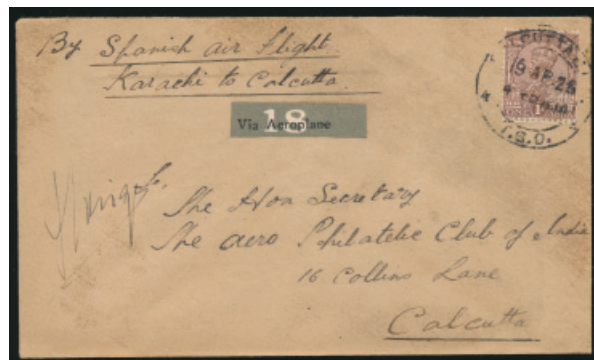 By Spanish air flight
Karachi to Calcutta
18
Via Aeroplane
CALCUTTA
19 AP. 26
T.S.O.
The Hon Secretary
The aero Philatelic Club of India
16 Collins Lane
Calcutta